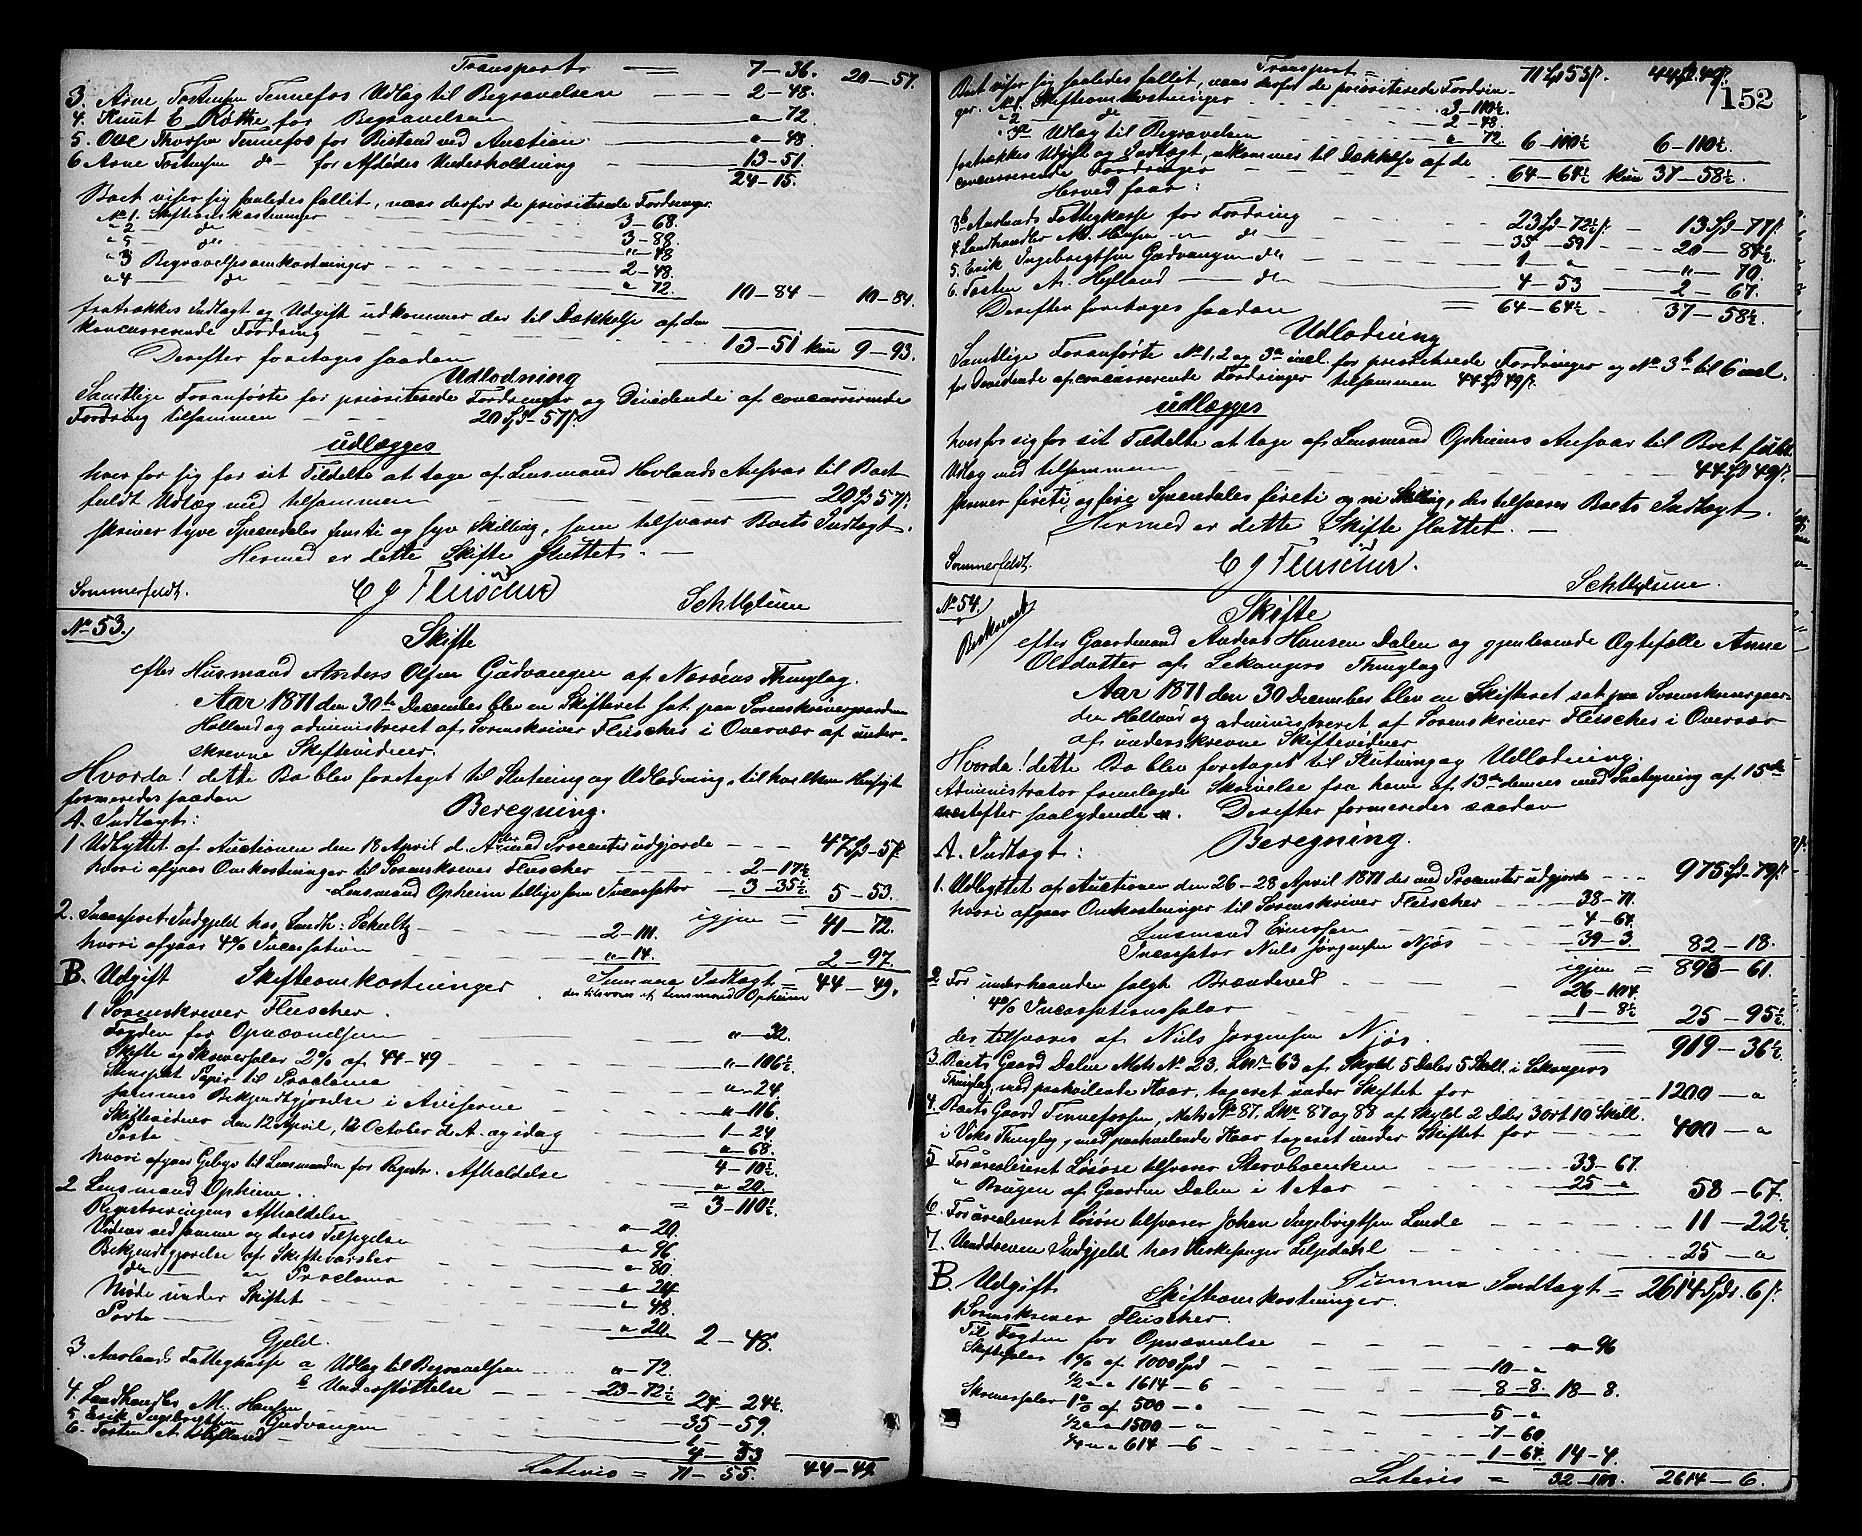 Transport = 7-36. 20-57.
3. Arne Tostensen Tennefos Udlag til Begravelsen 2-48.
4. Knut E. Røkke for Begravelsen " - 72
5. Ove Thorsen Tennefos for Bistand ved Auction " - 48
6 Arne Tostensen do - for Afdødes Underholdning 13-51.
24-15.
Boet viser sig saaledes fallit, naar derfor de prioriterede Fordringer
No 1. Skifteomkostninger 3-68.
" 2 do 3-88.
" 5 do " 48
" 3 Begravelsesomkostninger 2-48.
" 4 do " 72. 10-84 - 10-84.
fratrækkes Indtægt og Udgift udkommer der til Dækkelse af den
koncurrerende Fordring 13-51 kun 9-93.
Derefter foretages saadan
Udlodning
Samtlige Foranførte for prioriterede Fordringer og Dividende af concurrerende
Fordring tilsammen 20 Spd - 57 s.
udlægges
hver for sig for sit Tildelte at tage af Lensmand Hovlands Ansvar til Boet
fuldt Udlæg med tilsammen 20 Spd 57 s.
skriver tyve Speciedaler femti og syv Skilling, som tilsvarer Boets Indtægt.
Hermed er dette Skifte sluttet. -
Sommerfeldt. C J Fleischer SchUglum
No 53.
Skifte
efter Husmand Anders Olsen Gudvangen af Nærøens Thinglag.
Aar 1871 den 30te December blev en Skifteret sat paa Sorenskrivergaarden
Holland og administreret af Sorenskriver Fleischer i Overvær af under-
skrevne Skiftevidner.
Hvorda! dette Bo blev foretaget til Slutning og Udlodning, til hvilken Hensigt
formeredes saadan
Beregning.
A. Indtægt:
1 Udbyttet af Auctionen den 18 April d. A. der med Procenter udgjorde 47 Spd - 5 s.
hvori afgaar Omkostninger til Sorenskriver Fleischer 2-17½
Lensmand Opheim tillige som Incassator 3-35½ 5-53.
igjen = 41-72.
2. Incasseret Indgjeld hos Landh: Schultz 2-111.
hvori afgaar 4% Incassation " - 14. 2-97.
Summa Indtægt = 44-49.
der tilsvares af Lensmand Opheim
B. Udgift Skifteomkostninger
1 Sorenskriver Fleischer.
Fogden for Opnævnelsen " - 32.
Skifte og Skriversalær 2% af 44-49 " - 106½
Stemplet Papir til Proclama " - 24
sammes Bekjendtgjørelse i Aviserne " - 116.
Skiftevidner den 12 April, 12 October d. A. og idag 1-24
Porto " - 68.
4-10½
hvori afgaar Gebyr til Lensmanden for Registr. Afholdelse " 20.
= 3-110½
2 Lensmand Opheim.
Registreringens Afholdelse " - 20.
Vidner ved samme og deres Tilsigelse " - 96
Bekjendtgjørelse af Skiftevarsler " - 80.
do " Proclama " - 24
Møde under Skiftet " - 48.
Porto " - 20. 2-48.
Gjeld.
3. Aurlands Fattigkasse a Udlæg til Begravelsen " - 72
b Understøttelse 23-72½ 24-24½
4. Landhandler M. Hansen 35-59.
5. Erik Ingebrigtsen Gudvangen 1 - "
6. Tosten A. Hylland 4-53
Lateris = 71-55. 44-49.
152
Transport = 71 Spd 55 s. 44 Spd 49 s.
Boet viser sig saaledes fallit, naar derfor de prioriterede Fordrin-
ger. No 1. Skifteomkostninger 3-110½
" 2 do 2-48
" 3a Udlæg til Begravelsen " 72. 6-110½ 6-110½
fratrækkes Udgift og Indtægt, udkommer til Dækkelse af de
concurrerende Fordringer 64-64½ kun 37-58½.
Herved faar:
3b Aurlands Fattigkasse for Fordring 23 Spd - 72½ s. - 13 Spd - 77 s.
4. Landhandler M. Hansen " do 35-59 20-84½
5. Erik Ingebrigtsen Gudvangen do 1 - " " - 70.
6. Tosten A. Hylland do 4-53 2-67.
Derefter foretages saadan = 64-64½ 37-58½.
Udlodning
Samtlige Foranførte No 1, 2 og 3a incl. for prioriterede Fordringer og No 3b til 6 incl.
for Dividende af concurrerende Fordringer tilsammen 44 Spd 49 s.
udlægges
hver for sig for sit Tildelte at tage af Lensmand Opheims Ansvar til Boet fuldt
Udlæg med tilsammen 44 Spd 49 s.
skriver fireti og fire Speciedaler fireti og ni Skilling, der tilsvarer Boets Indtægt.
Hermed er dette Skifte sluttet. -
Sommerfeldt. C J Fleischer. SchUglum.
No 54.
Skifte
efter Gaardmand Anders Hansen Dalen og gjenlevende Ægtefælle Anna
Olsdatter af Lekangers Thinglag
Aar 1871 den 30 December blev en Skifteret sat paa Sorenskrivergaar-
den Holland og administreret af Sorenskriver Fleischer i Overvær
af underskrevne Skiftevidner
Hvorda! dette Bo blev foretaget til Slutning og Udlodning.
Administrator fremlagde Skrivelse fra ham af 13de dennes med Paategning af 15de
næstefter saalydende ". Derefter formeredes saadan
Beregning.
A. Indtægt:
1. Udbyttet af Auctionen den 26-28 April 1871 der med Procenter udgjorde 975 Spd - 79 s.
hvori afgaar Omkostninger til Sorenskriver Fleischer 38-71.
Lensmand Einersen 4-64.
Incassator Niels Jørgensen Njøs 39-3. 82-18.
igjen = 893-61.
2 For underhaanden solgt Brændeved 26-104.
4% Incassationssalær 1-8½ 25-95½
der tilsvares af Niels Jørgensen Njøs. = 919-36½
3. Boets Gaard Dalen Mats No 23, LNr 63 af Skyld 5 Daler 5 Skill. i Lekangers
Thinglag, med paahvilende Kaar, tageret under Skiftet for 1200 - "
4. Boets Gaard Tennefossen, Mats No 87. LNr 87 og 88 af Skyld 2 Daler 3 ort 10 Skill.
i Viks Thinglag, med paahvilende Kaar tageret under Skiftet for 400 - "
5 For averteret Løsøre tilsvarer Stervboenken 33-67.
" Brugen af Gaarden Dalen i 1 Aar 25 - " 58-67.
6. For averteret Løsøre tilsvarer Johan Ingebrigtsen Linde 11-22½
7. Uinddreven Indgjeld hos Kirkesanger Liljedahl 25 - "
Summa Indtægt = 2614 Spd. 6 s.
B. Udgift Skifteomkostninger.
1 Sorenskriver Fleischer.
Til Fogden for Opnævnelse " - 96
Skiftesalær 1% af 1000 Spd 10 - "
½ " " 1614-6 8-8. 18-8.
Skriversalær 1% af 500 - " 5 - "
½ " " 1500 - " 7-60
¼ " " 614-6 1-64. 14-4.
Lateris = 32-108. 2614-6.